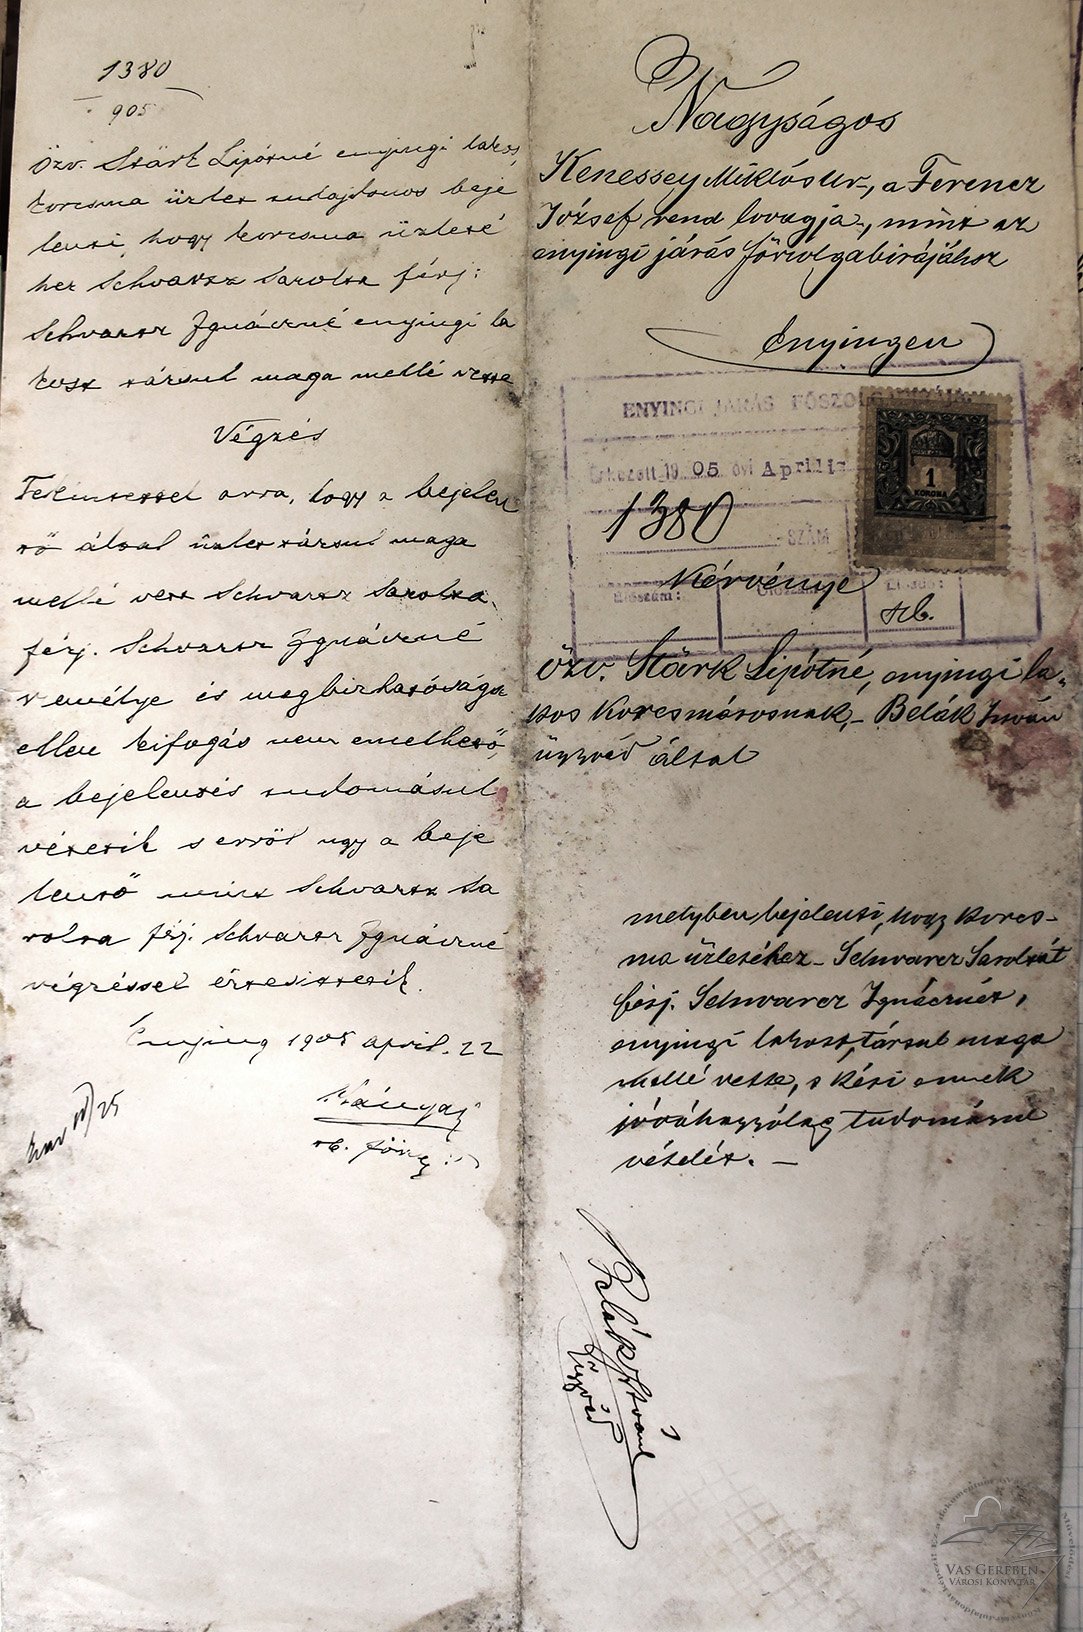 1380
905
Özv. Stärk Lipótné enyingi lakos,
korcsma üzlet tulajdonos beje
lenti, hogy korcsma üzleté
hez Schvartz Sarolta férj:
Schvartz Ignáczné enyingi la
kost társul maga mellé vette
Végzés
Tekintettel arra, hogy a bejelen
tő által üzlettársul maga
mellé vett Schvartz Sarolta
férj. Schvartz Ignáczné
személye és megbizhatósága
ellen kifogás nem emelhető,
a bejelentés tudomásul
vétetik s erről ugy a beje
lentő mint Schvartz Sa
rolta férj. Schvartz Ignáczné
végzéssel értesittetik.
Enying 1905 april. 22
Nagyságos
Kenessey Miklós Ur-, a Ferencz
József rend lovagja-, mint az
enyingi járás főszolgabirájához
Enyingen
ENYINGI JÁRÁS
Érkezett 1905 évi Április
1380
SZÁM
1
KORONA
Kérvénye
Özv. Stärk Lipótné, enyingi la-
kos korcsmárosnak,- Belák István
ügyvéd által
melyben bejelenti, hogy korcs-
ma üzletéhez- Schvarcz Saroltát
férj. Schvarcz Ignácznét,
enyingi lakost, társul maga
mellé vette, s kéri ennek
jóváhagyólag tudomásul
vételét. -
Belák István
ügyvéd
VAS GEREBEN
VÁROSI KÖNYVTÁR